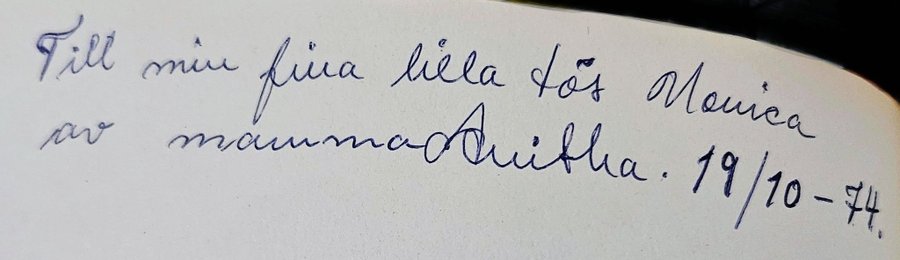 Till min fina lilla tös Monica
av mamma Anitha. 19/10-74.